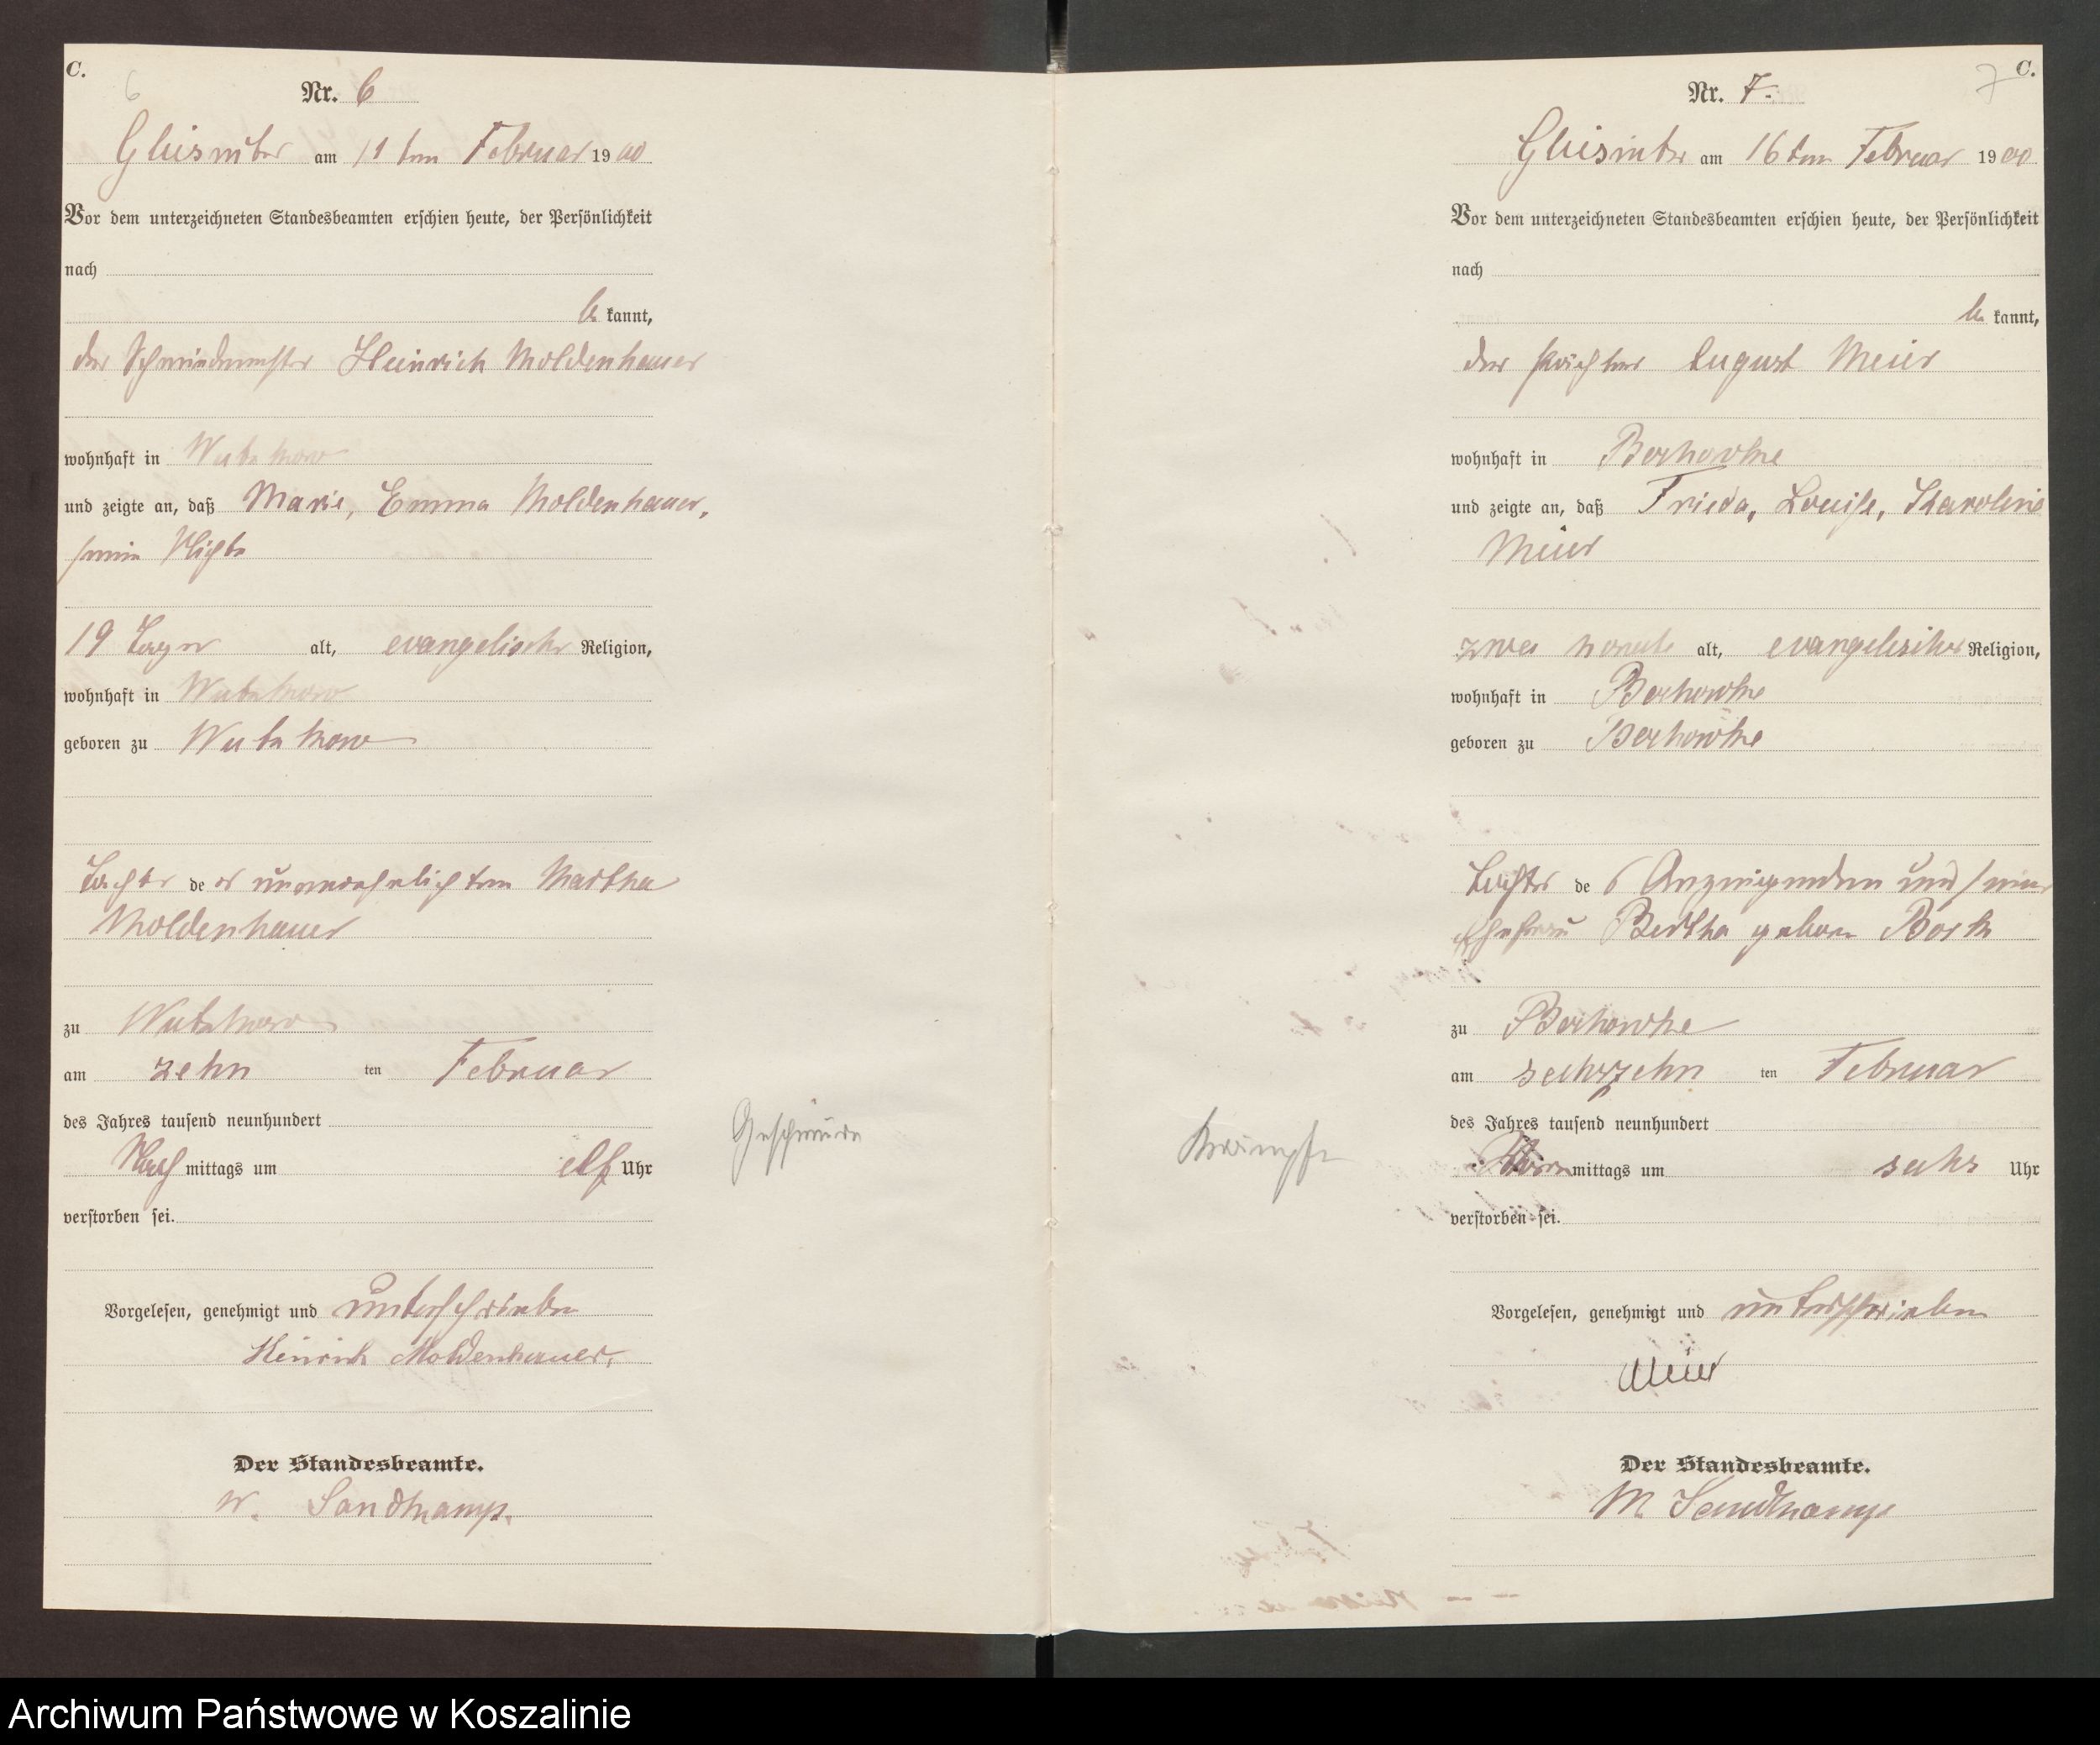 C.
6
Nr. 6
am 11ten Februar 1900
Vor dem unterzeichneten Standesbeamten erschien heute, der Persönlichkeit
nach
be kannt,
der Schmiedemeister Heinrich Moldenhauer
wohnhaft in Wutzkow
und zeigte an, daß Marie, Emma Moldenhauer,
seine Nichte
19 Tage alt, evangelischer Religion,
wohnhaft in Wutzkow
geboren zu Wutzkow
Tochter de er unverehelichten Martha
Moldenhauer
zu Wutzkow
am zehn ten Februar
des Jahres tausend neunhundert
Nach mittags um elf Uhr
verstorben sei.
Vorgelesen, genehmigt und unterschrieben
Heinrich Moldenhauer.
Der Standesbeamte.
W. Sandkamp.
Geschwüre
Krämpfe
C.
7
Nr. 7.
am 16ten Februar 1900
Vor dem unterzeichneten Standesbeamten erschien heute, der Persönlichkeit
nach
be kannt,
der Pächter August Meier
wohnhaft in
und zeigte an, daß Frieda, Louise, Karoline
Meier
zwei Monate alt, evangelischer Religion,
wohnhaft in
geboren zu
Tochter de s Anzeigenden und seiner
Ehefrau Bertha geboren Bork
zu
am sechszehn ten Februar
des Jahres tausend neunhundert
Vor mittags um sechs Uhr
verstorben sei.
Vorgelesen, genehmigt und unterschrieben
Meier
Der Standesbeamte.
W. Sandkamp
Archiwum Państwowe w Koszalinie